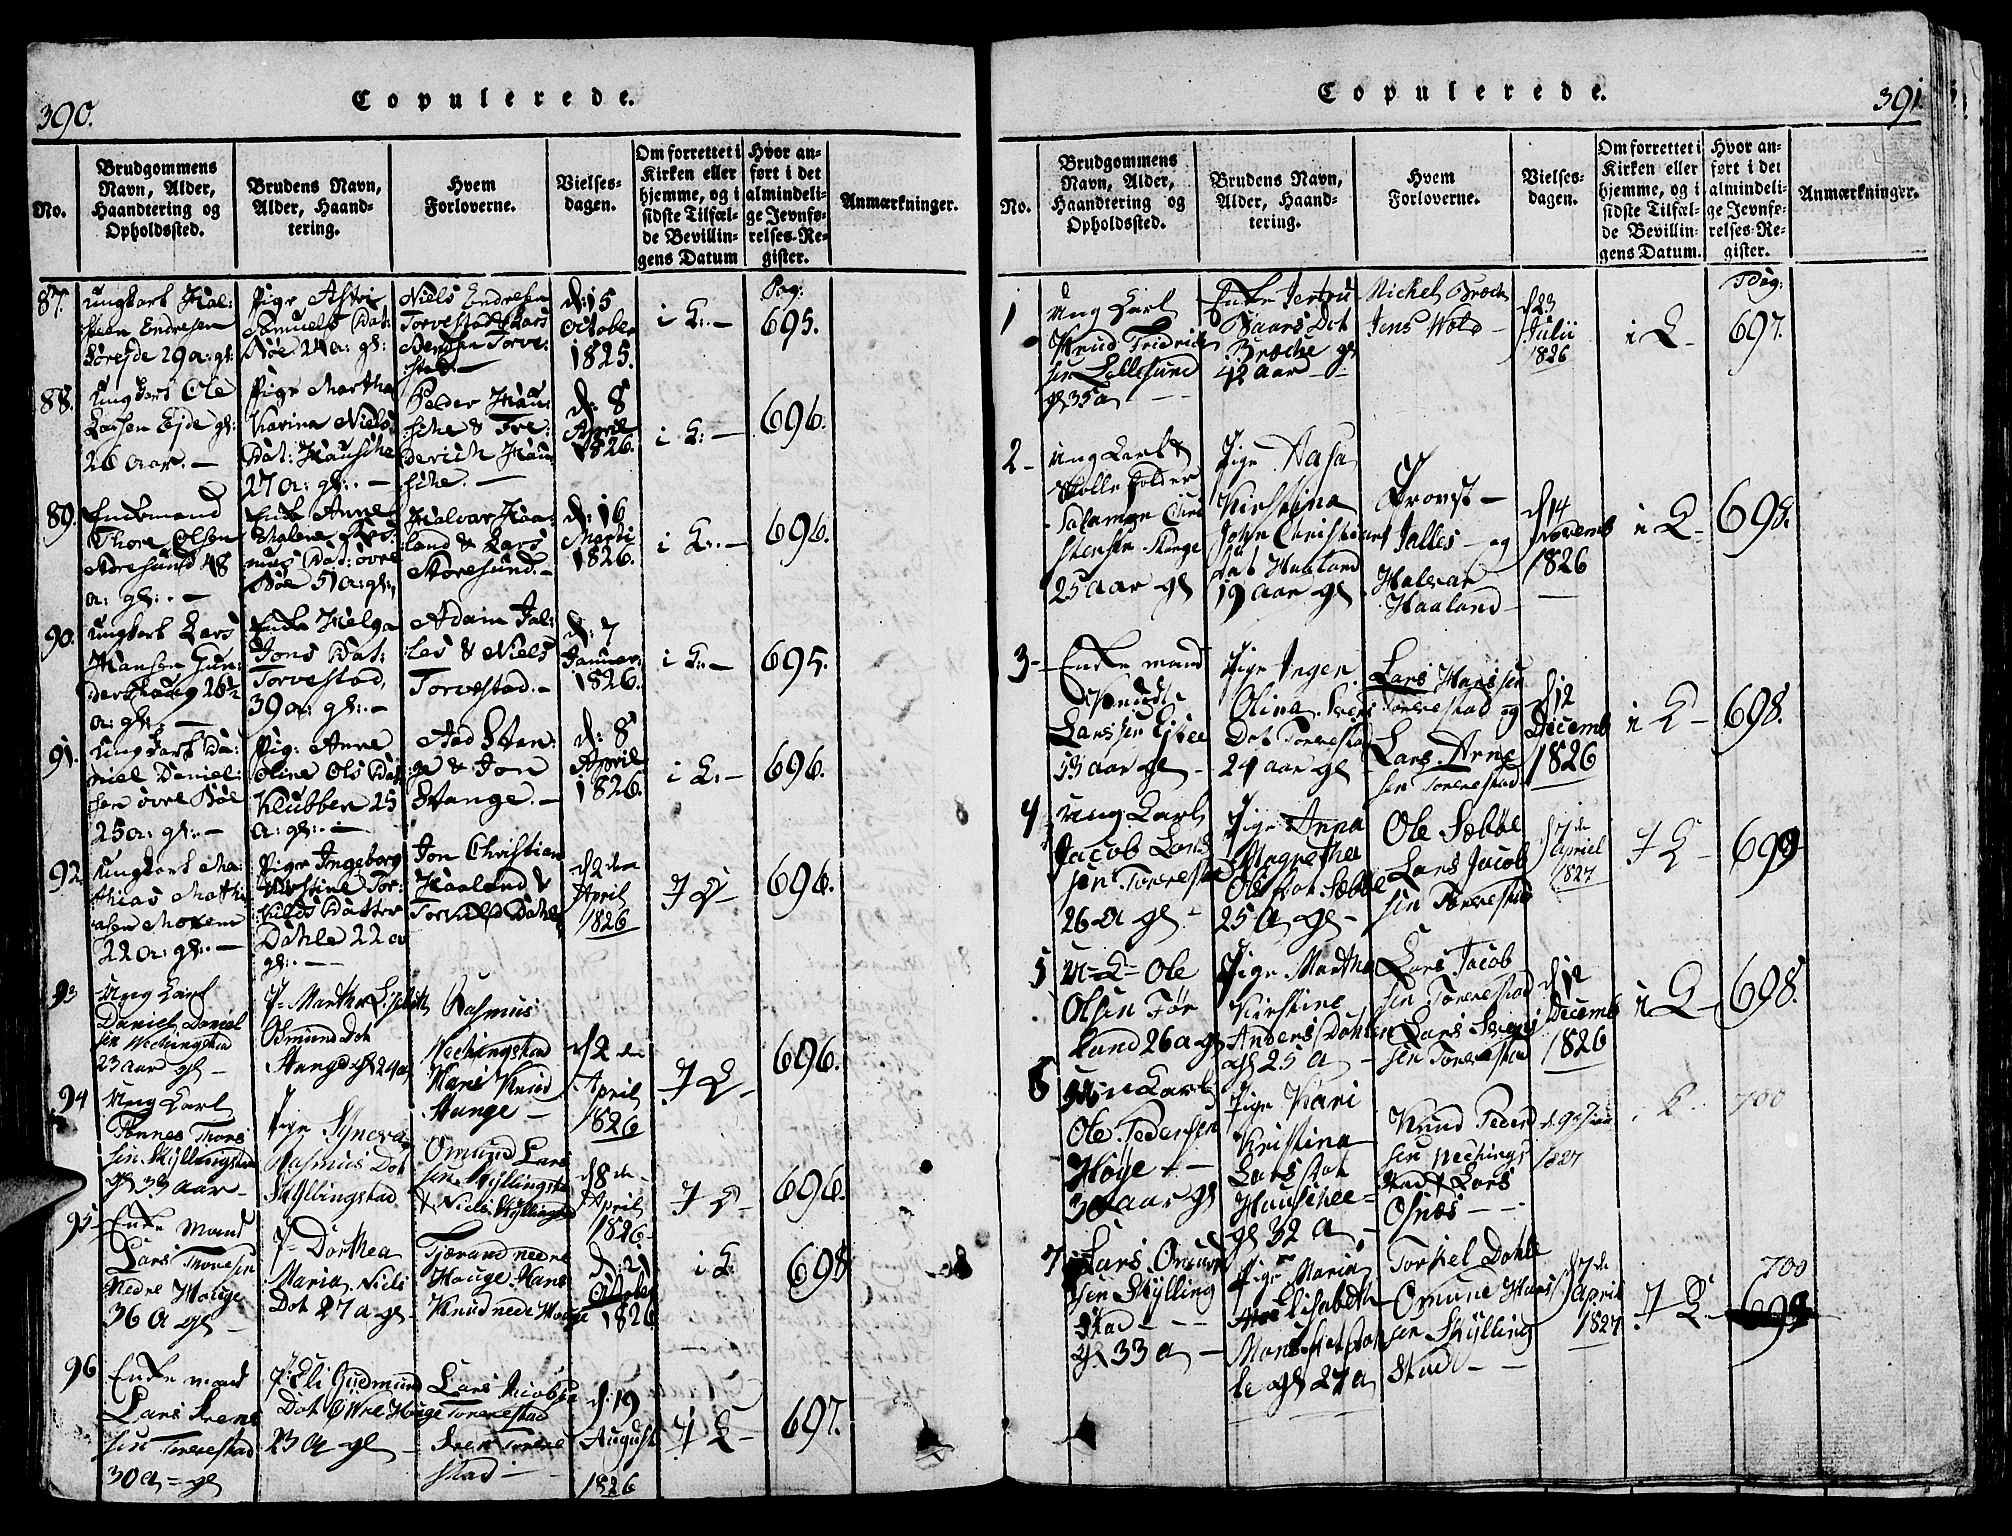 390.
Copulerede.
No.
Brudgommens
Navn, Alder,
Haandtering og
Opholdssted.
Brudens Navn,
Alder, Haand-
tering.
Hvem
Forloverne.
Vielses-
dagen.
Om forrettet i
Kirken eller
hjemme, og i
sidste Tilfæl-
de Bevillin-
gens Datum
Hvor an-
ført i det
almindeli-
ge Jevnfø-
relses-Re-
gister.
Anmærkninger.
87.
ungkarl
Endresen
29 a: gl:
Pige Astri
Samuels Dat:
Bøe 24 a: gl:
Niels Endresen
Torvestad & Lars
Torve:
stad. —
d: 15
October
1825.
i K: —
Pag:
695.
88.
ungkarl Ole
Larsen Eide gl:
26 aar. —
Pige Martha
Karina Niels
Dat: Hausche
27 a: gl: —
Peder Hau:
sche & Fre:
derich Hau
sche. —
d: 8
April
1826.
i K: —
696.
89.
Enkemand
Thore Olsen
Storesund 48
a: gl: —
Enke Anne
Malene Ras:
mus Dat: øvre
Bøe 51 a: gl:
Halvor Haa:
land & Lars
Storesund. —
d: 16
Marti
1826.
i K: —
696.
90.
ungkarl Lars
Hansen Gun:
dershaug 26½
a: gl: —
Enke Helga
Jons Dat:
Torvestad,
39 a: gl: —
Adam Jal:
les & Niels
Torvestad. —
d: 7
Januar:
1826.
i K: —
695.
91.
ungkarl Da:
niel Daniel:
sen øvre Bøe
25 a: gl: —
Pig: Anne
Oline Ols Dat
Klubben 25
a: gl: —
Aad Stan:
ge & Jon
Stange. —
d: 8
April
1826.
i K: —
696.
92.
ungkarl Ma:
thias Mathi
asen
22 a: gl: —
Pige Ingeborg
Kirstine Tor:
kilds Datter
Dahle 22 a
gl: —
Jon Christian
Haaland &
Torkild Dahle
d 2 den
April
1826
I K —
696.
93
Ung Karl
Daniel Daniel
sen Vechingstad
23 aar gl —
P. Martha Lisabeth
Odmund Dot
Stange gl 24 a
Rasmus
Vechingstad
Hans Knud
Stange —
d 2 den
April
1826
I K —
696.
94
Ung Karl
Tønnes Thors
sen Skyllingstad
gl 33 aar —
Pige Syneva
Rasmus Dot
Skyllingstad
Omund Lars
sen Skyllingstad
& Niels Skyllingstad
d 8 de
April
1826 —
I K —
696.
95
Enke Mand
Lars Thorsen
Nedre Houge
36 a gl —
P. Dorthea
Maria Niels
Dot 27 a gl —
Tjærand nedre
Houge Hans
Knud nede Houge
d: 21
October
1826
i K
698
96
Enke mand
Lars Svens
sen Torvestad
30 a = gl
P. Eli Gudmund
Dot Øvre Houge
23 a gl —
Lars Jacobsen
Torvestad
Sven Torve
stad —
d: 19
August
1826
I K —
697.
Copulerede.
391.
No.
Brudgommens
Navn, Alder,
Haandtering og
Opholdssted.
Brudens Navn,
Alder, Haand-
tering.
Hvem
Forloverne.
Vielses-
dagen.
Om forrettet i
Kirken eller
hjemme, og i
sidste Tilfæl-
de Bevillin-
gens Datum.
Hvor an-
ført i det
almindeli-
ge Jevnfø-
relses-Re-
gister.
Anmærkninger.
1
Ung Karl
Knud Fridrich
sen Lillesund
gl 35 a —
Enke Jertru
Baars Dot
Broche gl
42 aar —
Michel Broche
Jens Wold —
d 23
Julii
1826
i K —
Pag:
697.
2 —
Ung Karl &
Skolle holder
Salamon Chri
stensen Stange
25 aar gl
Pige Aasa
Kirstina
John Christians
dat Haaland
19 aar gl
Provst —
Jalles — og
Halvar
Haaland —
d 14
Novemb
1826
i K —
698.
3 —
Enke mand
Knud
Larssen Eide
53 aar gl —
Pige Inger
Olina Svens
Dot Torvestad
24 aar gl —
Lars Hanssen
Torvestad og
Lars Arne
sen Torvestad
d 12
Decemb
1826
i K —
698.
4
Ung Karl
Jacob Lars
sen Torvestad
26 a gl —
Pige Anna
Magrethe
Ols Dat Sæbbe
25 a gl —
Ole Sæbbe
Lars Jacob
sen Torvestad
d 7 de
Apriel
1827
I K —
699
5
U = K = Ole
Olsen Før
land 26 a gl
Pige Martha
Kirstine
Anders Dot
gl 25 a —
Lars Jacob
sen Torvestad
Lars Svens
sen Torvestad
d 12
Decemb
1826
i K —
698.
6
Ung Karl
Ole Pedersen
Høye —
30 aar gl
Pige Kari
Kristina
Lars Dat
Hauschee
gl 32 a —
Knud Peder
sen Vechings
stad & Lars
Osnes — —
1827
K
700
7
Lars Omund
sen Skylling
stad — — —
gl 33 a —
Pige Maria
Elisabeth
gl 27 a
Torkel Dohle
Omund Hans
sen Skylling
stad — —
d 7 de
April
1827
I K —
700